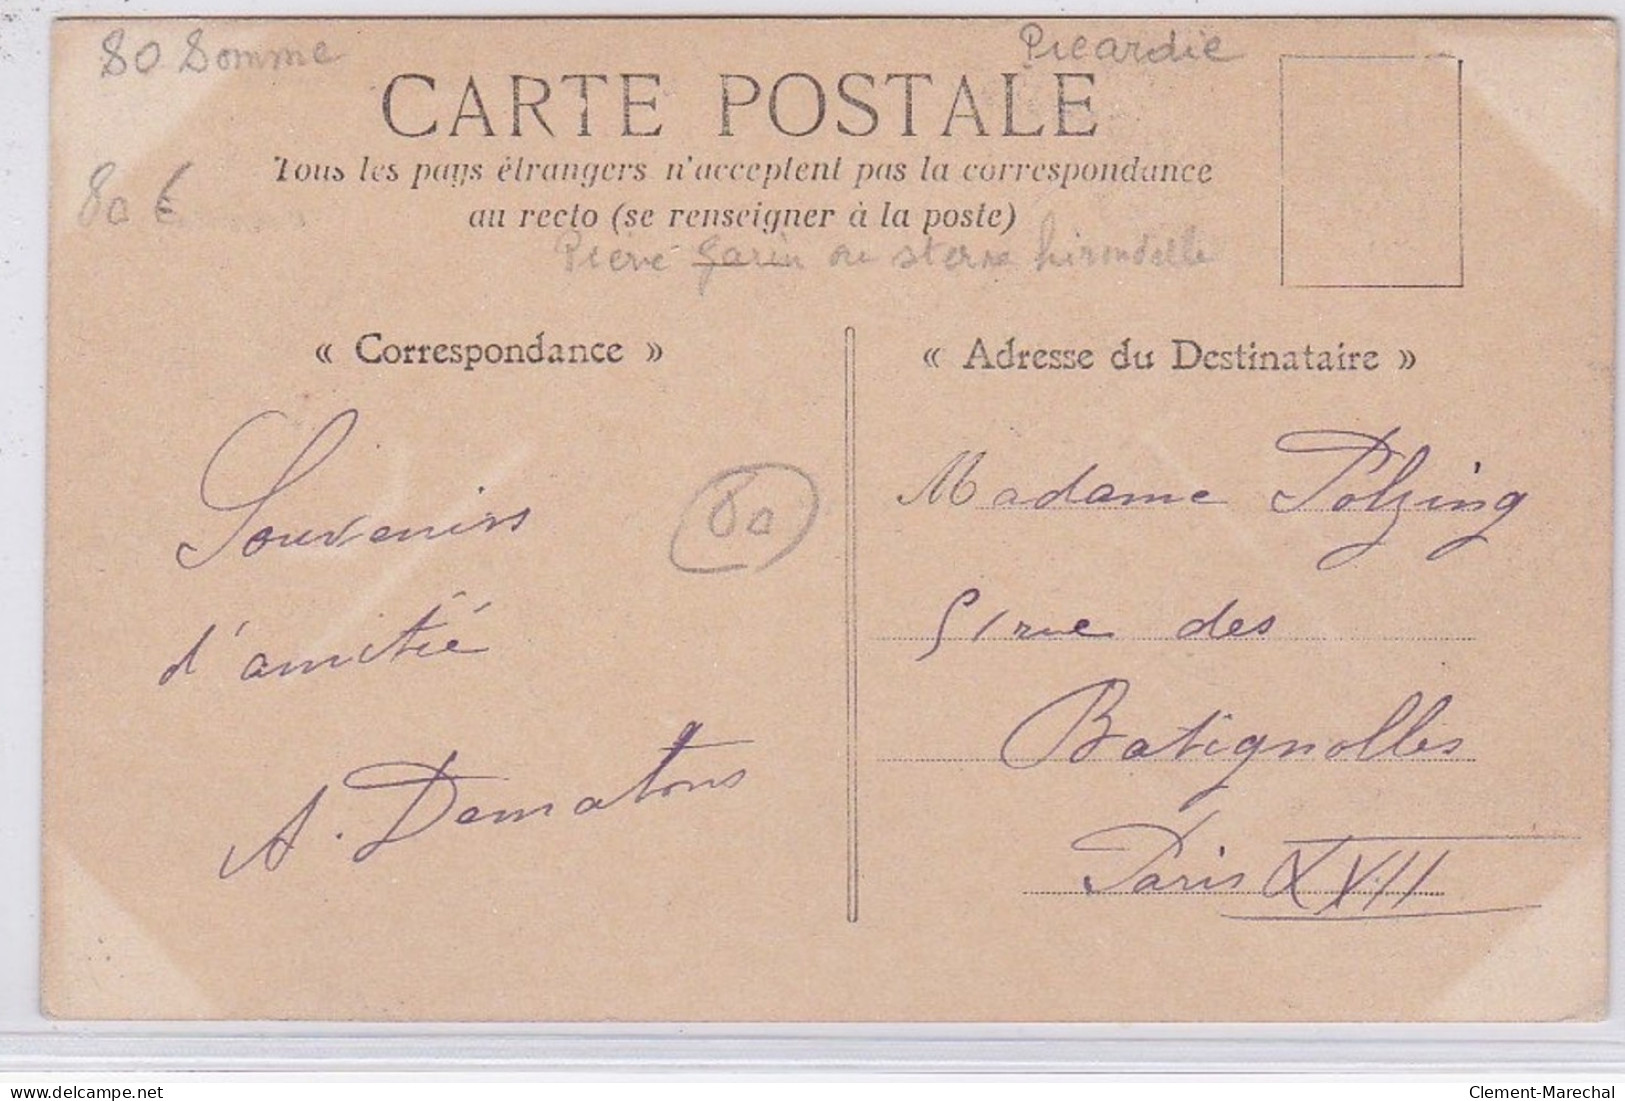 80 Somme
Picardie
CARTE POSTALE
Tous les pays étrangers n'acceptent pas la correspondance
80 €
au recto (se renseigner à la poste)
Garin ou sterne hirondelle
« Correspondance »
« Adresse du Destinataire »
Souvenirs
d'amitié
A. Dematons
80
Madame Polzing
51 rue des
Batignolles
Paris XVII
delcampe.net
Clement-Marechal